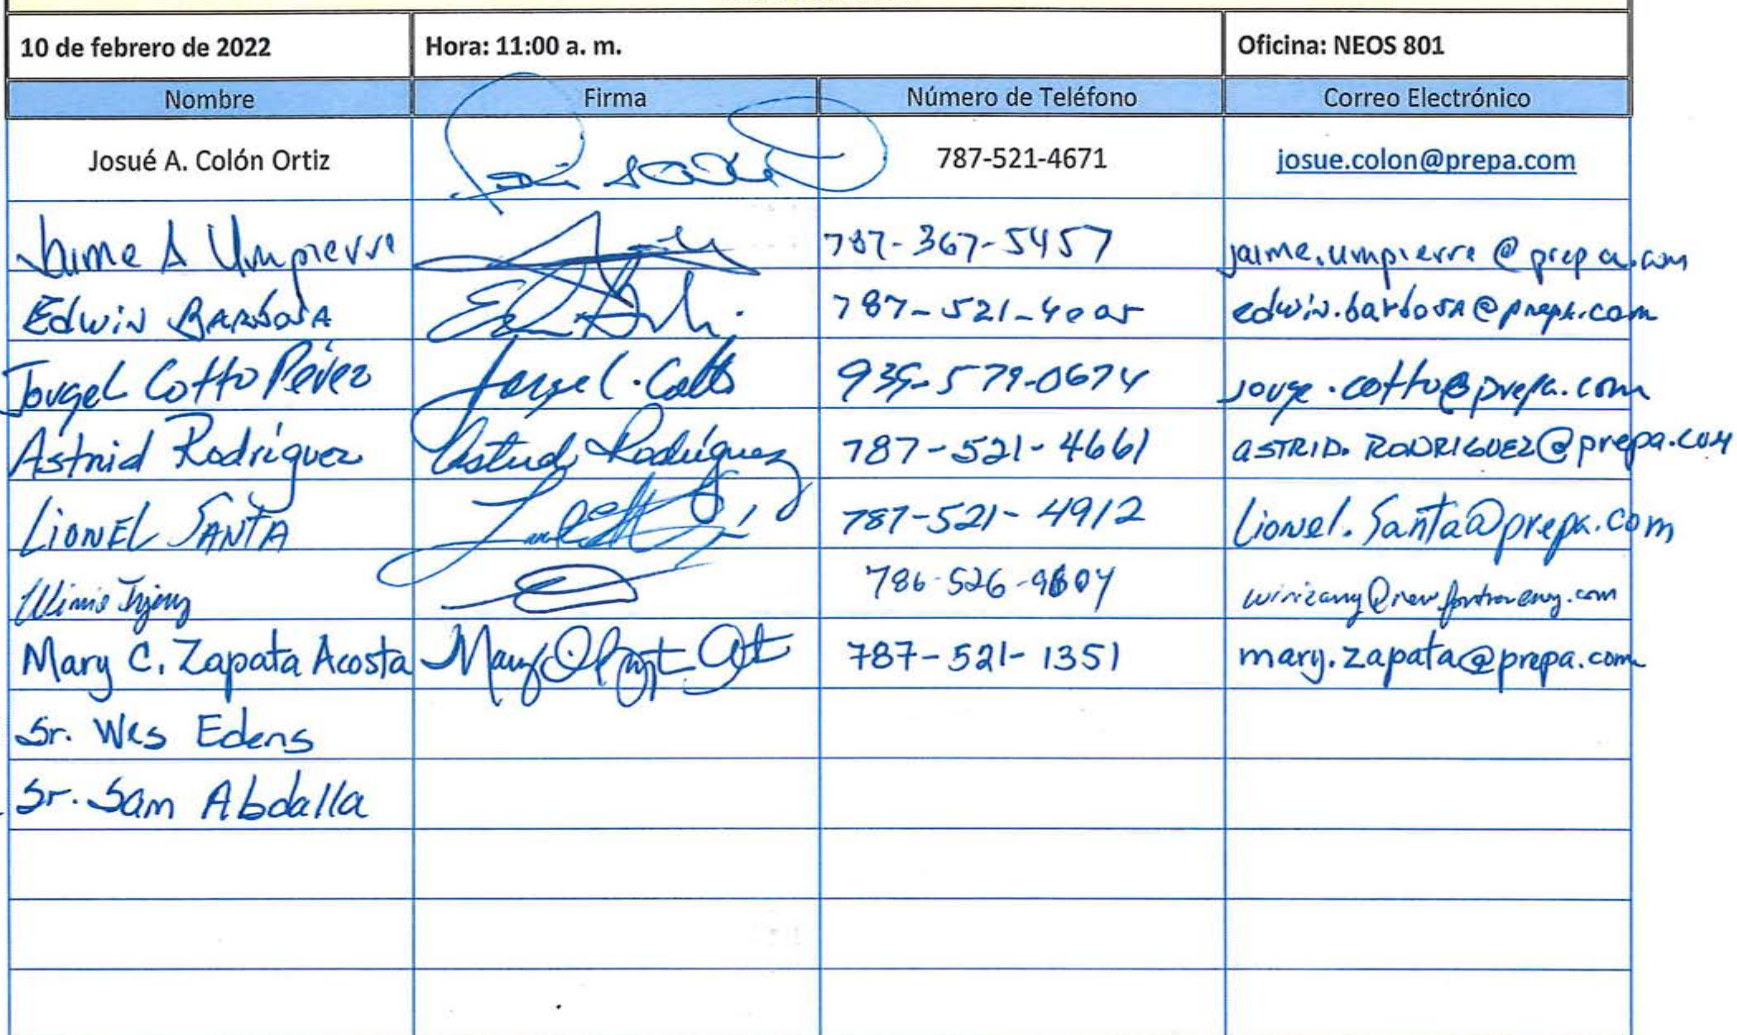 10 de febrero de 2022 Hora: 11:00 a. m. Oficina: NEOS 801
Nombre Firma Número de Teléfono Correo Electrónico
Josué A. Colón Ortiz 787-521-4671 josue.colon@prepa.com
Jaime A Umpierre 787-367-5457 jaime.umpierre@prepa.com
Edwin Barbosa 787-521- edwin.barbosa@prepa.com
Jorge L Cotto Pérez Jorge L. Cotto 939-579-0674 jorge.cotto@prepa.com
Astrid Rodríguez Astrid Rodríguez 787-521-4661 ASTRID.RODRIGUEZ@prepa.com
LIONEL SANTA 787-521-4912 Lionel.Santa@prepa.com
786-526-9604
Mary C. Zapata Acosta 787-521-1351 mary.zapata@prepa.com
Sr. Wes Edens
Sr. Sam Abdalla